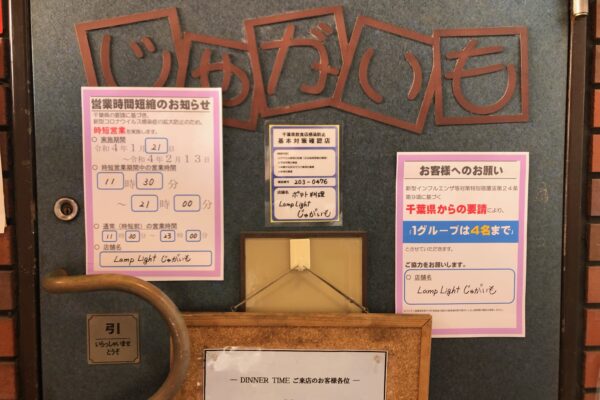 じゃがいも
営業時間短縮のお知らせ
千葉県の要請に基づき、
新型コロナウイルス感染症の拡大防止のため、
時短営業を実施します。
○ 実施期間
令和4年1月21日
～令和4年2月13日
○ 時短営業期間中の営業時間
11時30分
～21時00分
○ 通常（時短前）の営業時間
11時30分～23時00分
○ 店舗名
Lamp Light じゃがいも
千葉県飲食店感染防止
基本対策確認店
203-0476
店舗名
ポテト料理
Lamp Light
じゃがいも
お客様へのお願い
新型インフルエンザ等対策特別措置法第24条
第9項に基づく
千葉県からの要請により、
1グループは4名まで
とさせていただきます。
ご協力をお願いします。
○ 店舗名
Lamp Light じゃがいも
引
いらっしゃいませ
どうぞ
― DINNER TIME ご来店のお客様各位 ―